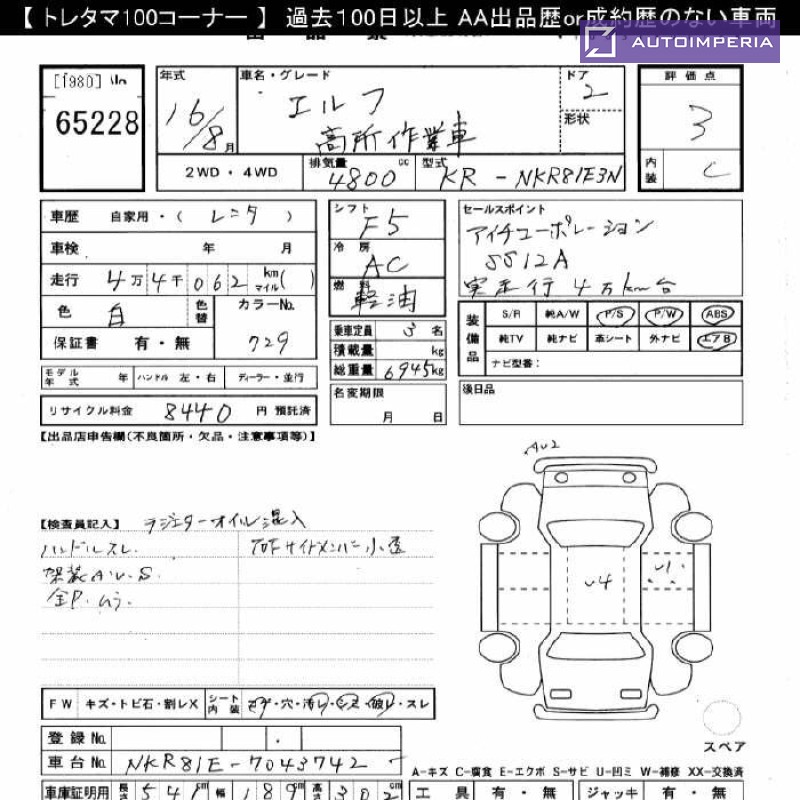 【 トレタマ100コーナー 】 過去100日以上 AA出品歴or成約歴のない車両
AUTOIMPERIA
[1980] No
65228
年式
16/8月
車名・グレード
エルフ
高所作業車
ドア
2
形状
評価点
3
内装
C
2WD・4WD
排気量 cc
4800
型式
KR-NKR81E3N
車歴 自家用・( レンタ )
車検 年 月
走行 4万4千062 km マイル( )
色 白 色替 カラーNo. 729
保証書 有・無
モデル年式 年 ハンドル 左・右 ディーラー・並行
リサイクル料金 8440 円 預託済
シフト F5
冷房 AC
燃料 軽油
乗車定員 3 名
積載量 kg
総重量 6945kg
名変期限
月 日
セールスポイント
アイチコーポレーション
SS12A
実走行4万km台
装備品
S/R 純A/W P/S P/W ABS
純TV 純ナビ 革シート 外ナビ エアB
ナビ型番:
後日品
【出品店申告欄(不良箇所・欠品・注意事項等)】
【検査員記入】 ラジエターオイル混入
ハンドルスレ.
右Fサイドメンバー小歪
架装A.U.S.
全P.ムラ.
AU2
U4
U1
スペア
FW キズ・トビ石・割レX シート内装 コゲ・穴・汚レ・シミ・破レ・スレ
登録No.
車台No. NKR81E-7043742
A-キズ C-腐食 E-エクボ S-サビ U-凹ミ W-補修 XX-交換済
車庫証明用 長さ 541cm 幅 189cm 高さ 302cm
工具 有・無 ジャッキ 有・無